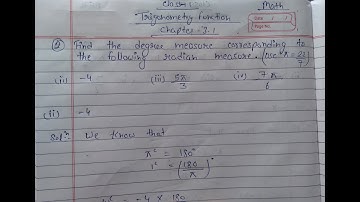 Class Math
Trigonometry Function
Chapter-3.1
② Find the degree measure corresponding to
the following radian measure. (use π = 22/7)
(ii) -4 (iii) 5π/3 (iv) 7π/6
(ii) -4
Solⁿ We know that
πᶜ = 180°
1ᶜ = (180/π)°
-4 × 180